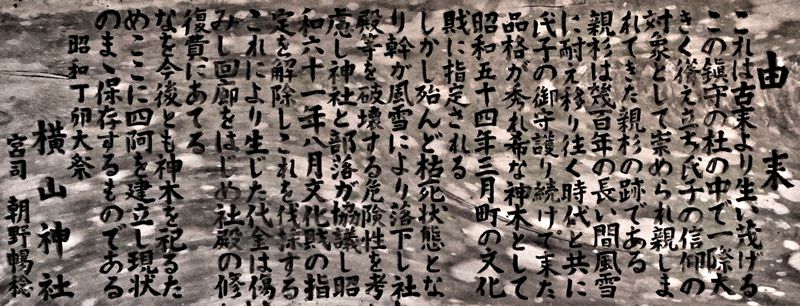 由来
これは古来より生い茂げる
この鎮守の杜の中で一際大
きく聳え立ち氏子の信仰の
対象として崇められ親しま
れてきた親杉の跡である
親杉は幾百年の長い間風雪
に耐え移り往く時代と共に
氏子の御守護り続けて来た
品格が秀れ希な神木として
昭和五十四年三月町の文化
財に指定される
しかし殆んど枯死状態とな
り幹が風雪により落下し社
殿等を破壊する危険性を考
慮し神社と部落が協議し昭
和六十一年八月文化財の指
定を解除しこれを伐採する
これにより生じた代金は傷
みし回廊をはじめ社殿の修
復費にあてる
なを今後とも神木を祀るた
めここに四阿を建立し現状
のまゝ保存するものである
昭和丁卯大祭
横山神社
宮司 朝野暢稔